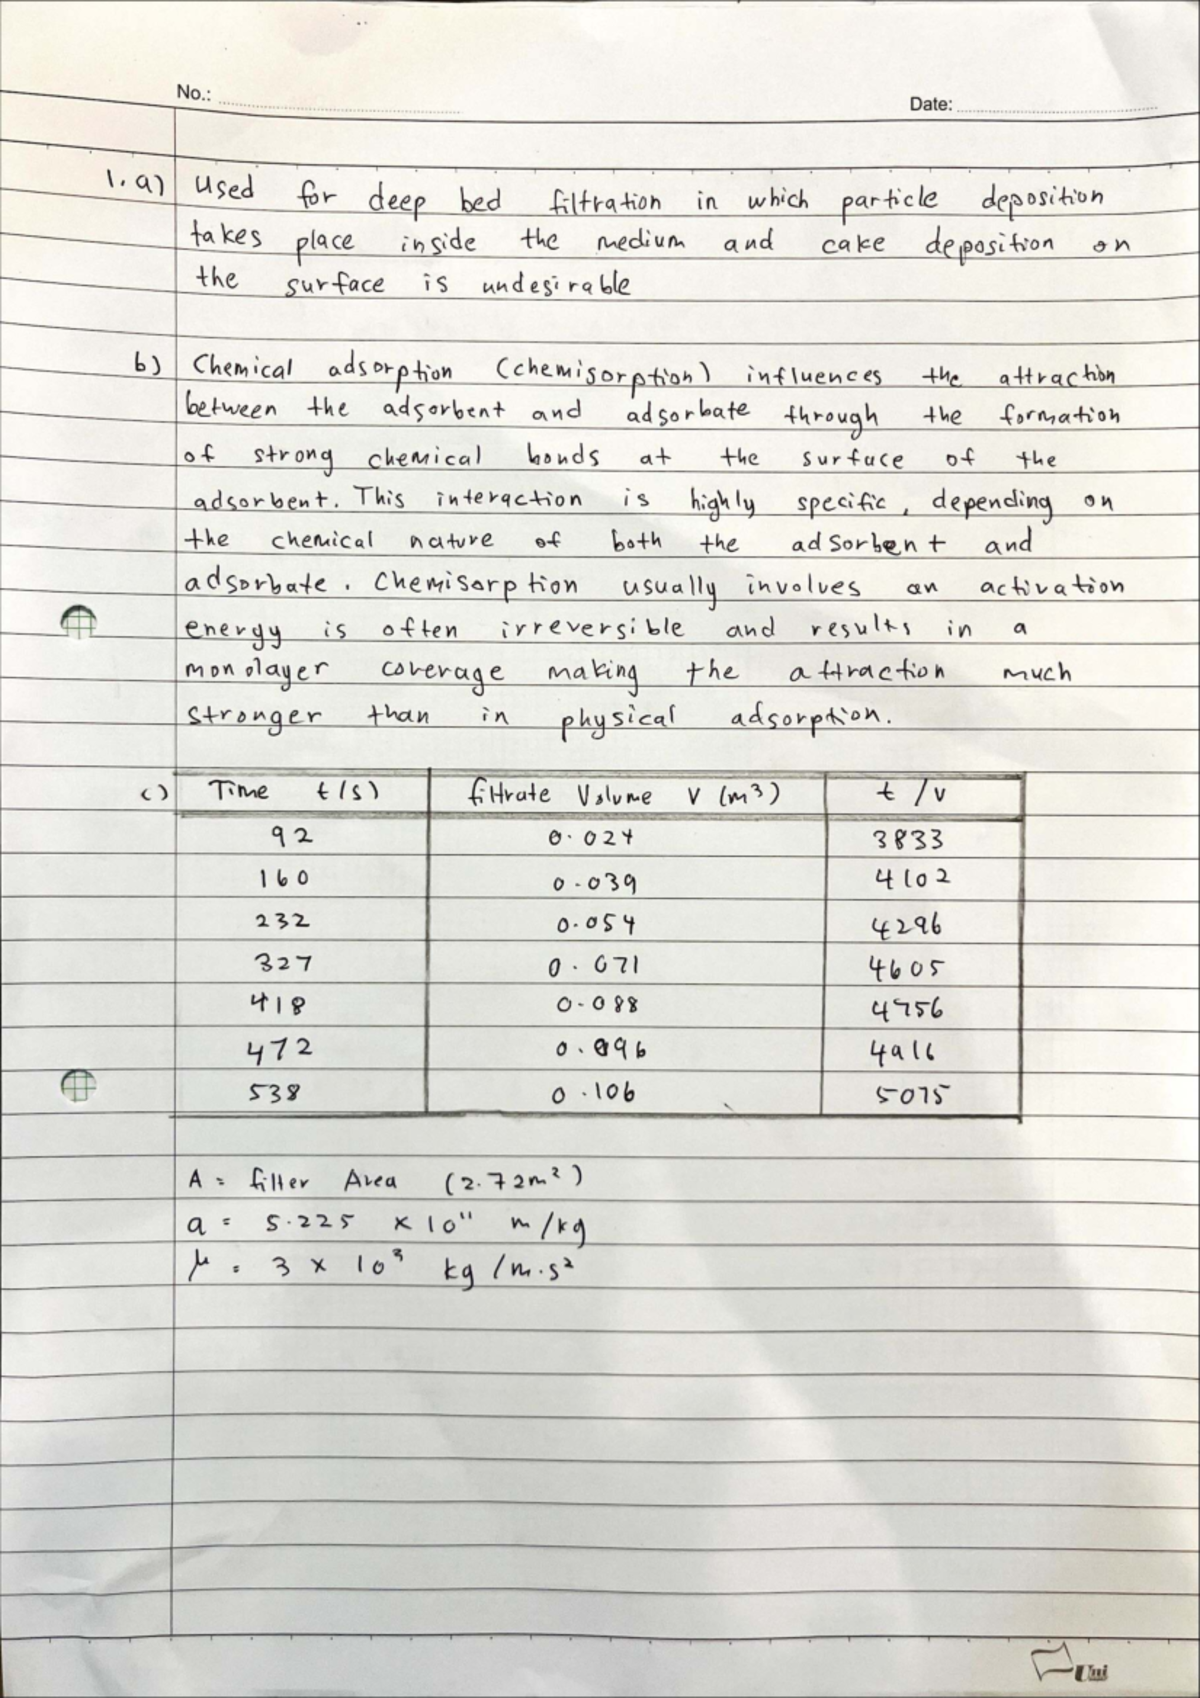 No.:
Date:
1. a) Used for deep bed filtration in which particle deposition
takes place inside the medium and cake deposition on
the surface is undesirable
b) Chemical adsorption (chemisorption) influences the attraction
between the adsorbent and adsorbate through the formation
of strong chemical bonds at the surface of the
adsorbent. This interaction is highly specific, depending on
the chemical nature of both the adsorbent and
adsorbate. Chemisorption usually involves an activation
energy is often irreversible and results in a
monolayer coverage making the attraction much
stronger than in physical adsorption.
c) Time t(s) filtrate Volume V (m³) t/v
92 0.024 3833
160 0.039 4102
232 0.054 4296
327 0.071 4605
418 0.088 4756
472 0.096 4916
538 0.106 5075
A = filter Area (2.72m²)
a = 5.225 × 10¹¹ m/kg
μ = 3 × 10³ kg/m.s²
Uni